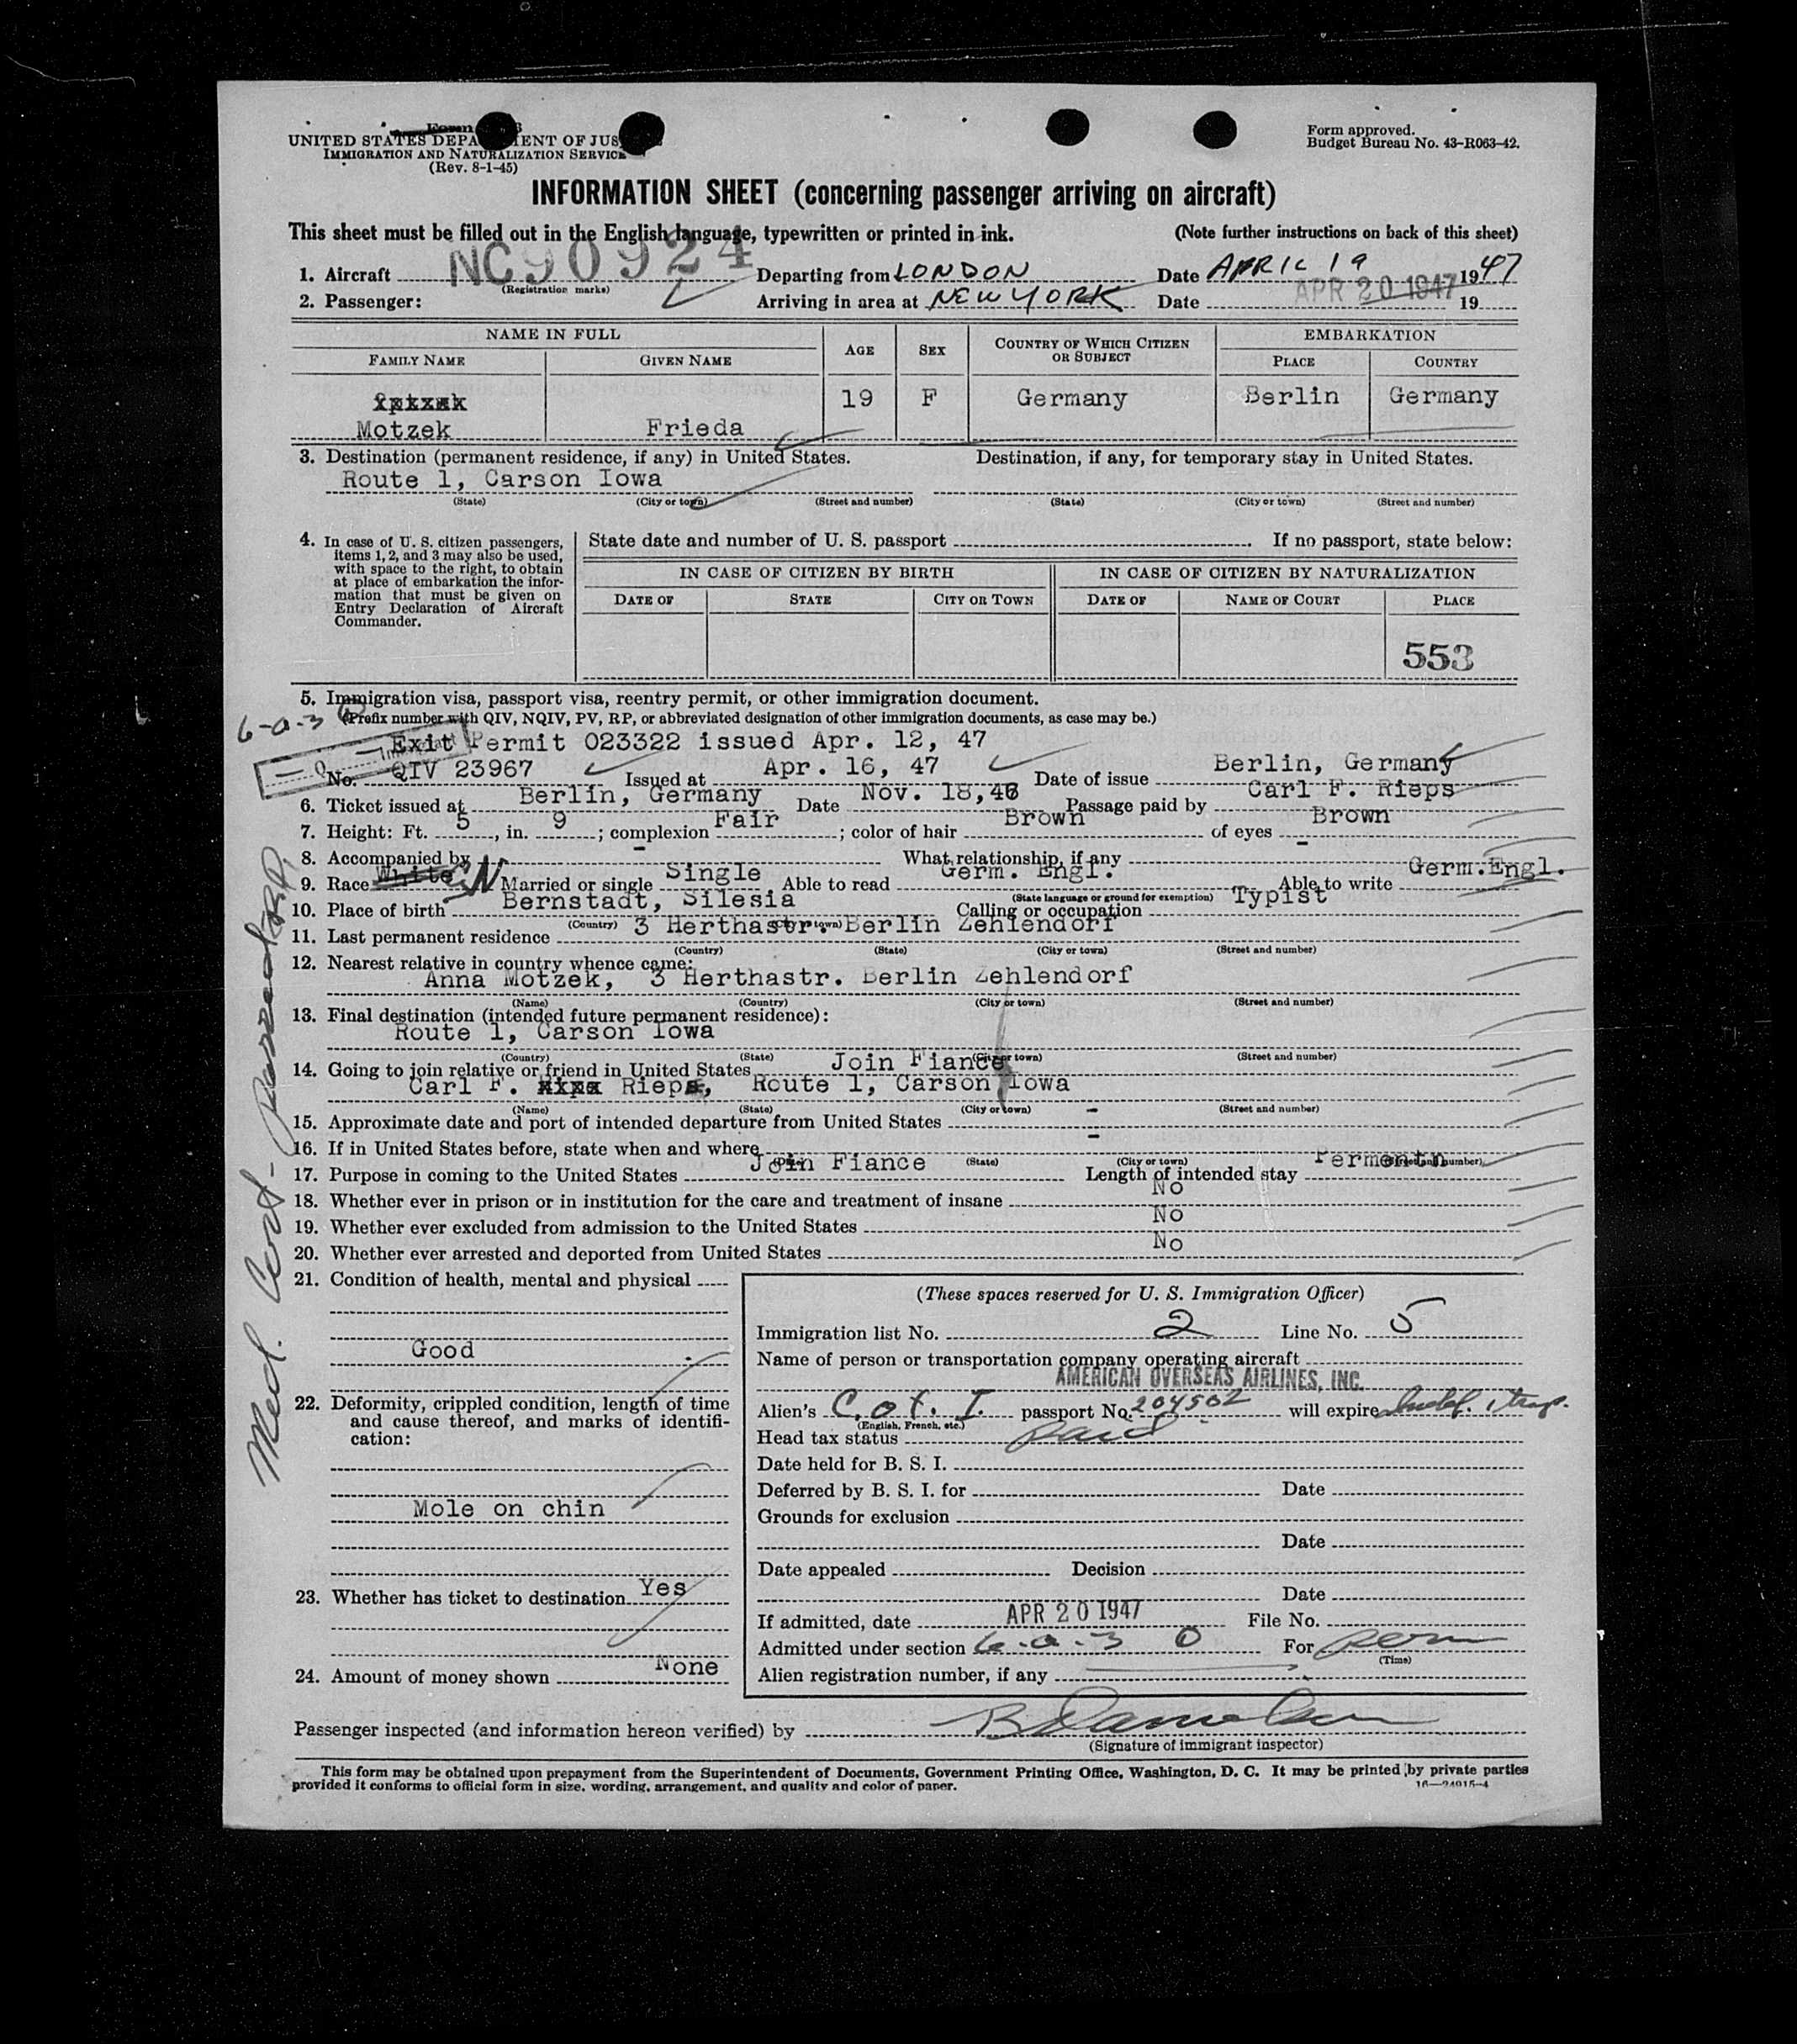 UNITED STATES DEPARTMENT OF JUS
IMMIGRATION AND NATURALIZATION SERVICE
(Rev. 8-1-45)
Form approved.
Budget Bureau No. 43-R063-42.
INFORMATION SHEET (concerning passenger arriving on aircraft)
This sheet must be filled out in the English language, typewritten or printed in ink. (Note further instructions on back of this sheet)
1. Aircraft NC90924 Departing from LONDON Date APRIL 19 1947
(Registration marks)
2. Passenger: Arriving in area at NEW YORK Date APR 20 1947 19
NAME IN FULL AGE SEX COUNTRY OF WHICH CITIZEN OR SUBJECT EMBARKATION
FAMILY NAME GIVEN NAME PLACE COUNTRY
19 F Germany Berlin Germany
Motzek Frieda
3. Destination (permanent residence, if any) in United States. Destination, if any, for temporary stay in United States.
Route 1, Carson Iowa
(State) (City or town) (Street and number) (State) (City or town) (Street and number)
4. In case of U. S. citizen passengers, items 1, 2, and 3 may also be used, with space to the right, to obtain at place of embarkation the information that must be given on Entry Declaration of Aircraft Commander.
State date and number of U. S. passport If no passport, state below:
IN CASE OF CITIZEN BY BIRTH IN CASE OF CITIZEN BY NATURALIZATION
DATE OF STATE CITY OR TOWN DATE OF NAME OF COURT PLACE
553
5. Immigration visa, passport visa, reentry permit, or other immigration document.
6-a-3 (Prefix number with QIV, NQIV, PV, RP, or abbreviated designation of other immigration documents, as case may be.)
Exit Permit 023322 issued Apr. 12, 47
No. QIV 23967 Issued at Apr. 16, 47 Date of issue Berlin, Germany
6. Ticket issued at Berlin, Germany Date Nov. 18,46 Passage paid by Carl F. Rieps
7. Height: Ft. 5, in. 9; complexion Fair; color of hair Brown of eyes Brown
8. Accompanied by - What relationship, if any -
9. Race White Married or single Single, Able to read Germ. Engl. Able to write Germ.Engl.
(State language or ground for exemption)
10. Place of birth Bernstadt, Silesia Calling or occupation Typist
(Country) (City or town)
11. Last permanent residence 3 Herthastr. Berlin Zehlendorf
(Country) (State) (City or town) (Street and number)
12. Nearest relative in country whence came:
Anna Motzek, 3 Herthastr. Berlin Zehlendorf
(Name) (Country) (City or town) (Street and number)
13. Final destination (intended future permanent residence):
Route 1, Carson Iowa
(Country) (State) (City or town) (Street and number)
14. Going to join relative or friend in United States Join Fiance
Carl F. Rieps, Route 1, Carson Iowa
(Name) (State) (City or town) (Street and number)
15. Approximate date and port of intended departure from United States -
16. If in United States before, state when and where -
(State) (City or town) (Street and number)
17. Purpose in coming to the United States Join Fiance Length of intended stay Permentn
18. Whether ever in prison or in institution for the care and treatment of insane No
19. Whether ever excluded from admission to the United States No
20. Whether ever arrested and deported from United States No
21. Condition of health, mental and physical
Good
22. Deformity, crippled condition, length of time and cause thereof, and marks of identification:
Mole on chin
23. Whether has ticket to destination Yes
24. Amount of money shown None
(These spaces reserved for U. S. Immigration Officer)
Immigration list No. 2 Line No. 5
Name of person or transportation company operating aircraft
AMERICAN OVERSEAS AIRLINES, INC.
Alien's C. of. I. passport No. 204502 will expire
(English, French, etc.)
Head tax status Paid
Date held for B. S. I.
Deferred by B. S. I. for Date
Grounds for exclusion
Date
Date appealed Decision
Date
If admitted, date APR 20 1947 File No.
Admitted under section 6-a-3 0 For perm
(Time)
Alien registration number, if any
Passenger inspected (and information hereon verified) by
(Signature of immigrant inspector)
This form may be obtained upon prepayment from the Superintendent of Documents, Government Printing Office, Washington, D. C. It may be printed by private parties
provided it conforms to official form in size, wording, arrangement, and quality and color of paper.
16—24915-4
Med. Cert-